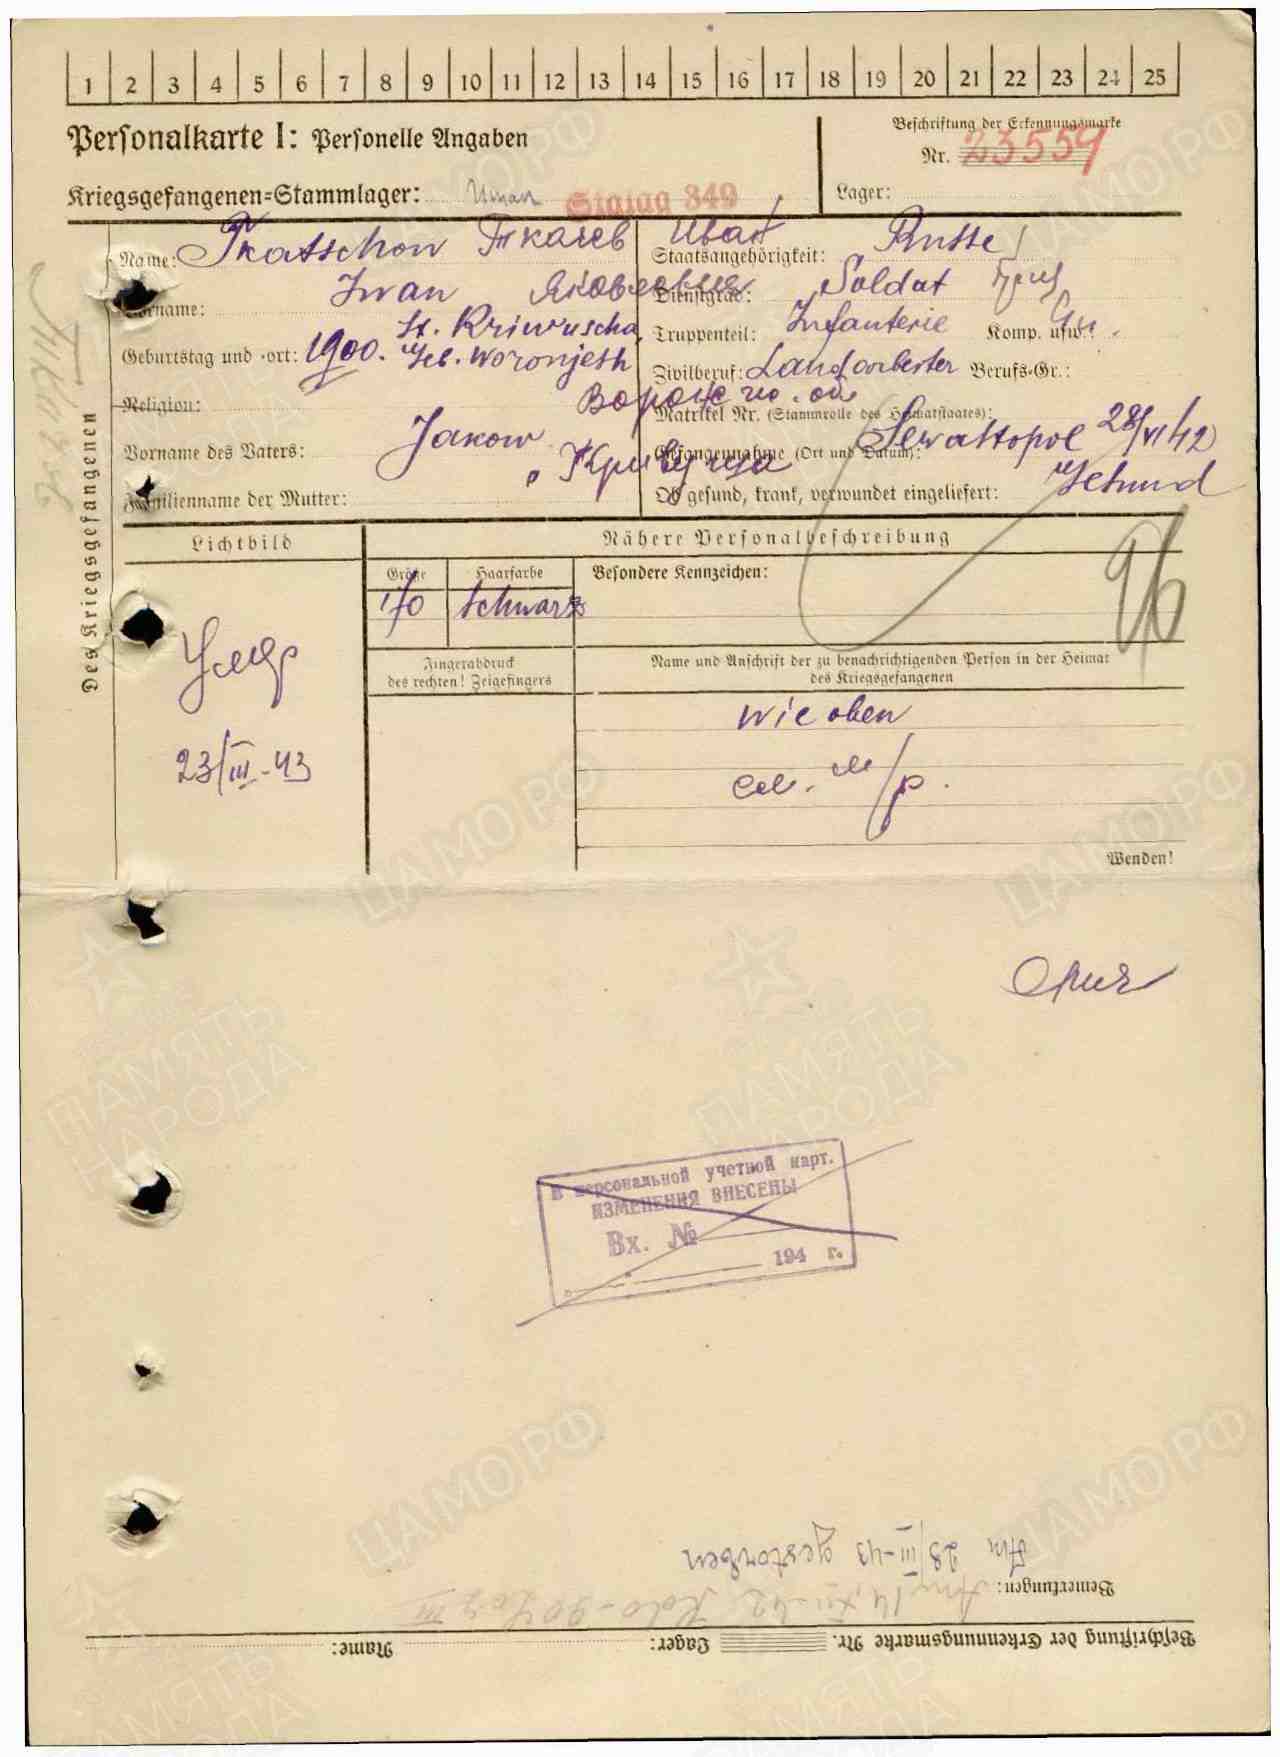 1 2 3 4 5 6 7 8 9 10 11 12 13 14 15 16 17 18 19 20 21 22 23 24 25
Personalkarte I: Personelle Angaben
Beschriftung der Erkennungsmarke
Nr. 23559
Kriegsgefangenen-Stammlager: Uman Stalag 349
Lager:
Des Kriegsgefangenen
Name: Tkatschow Ткачев Иван
Vorname: Iwan Яковлевич
Geburtstag und -ort: 1900. St. Kriwuscha, Geb. Woronjesh
Religion:
Воронеж. об.
Vorname des Vaters: Jakow
Кривуша
Familienname der Mutter:
Staatsangehörigkeit: Russe
Dienstgrad: Soldat
Truppenteil: Infanterie Komp. usw.:
Zivilberuf: Landarbeiter Berufs-Gr.:
Matrikel Nr. (Stammrolle des Heimatstaates):
Gefangennahme (Ort und Datum): Sewastopol 28/VI 42
Ob gesund, krank, verwundet eingeliefert: Gesund
Lichtbild
Nähere Personalbeschreibung
Größe Haarfarbe Besondere Kennzeichen:
170 schwarz
96
Fingerabdruck
des rechten! Zeigefingers
Name und Anschrift der zu benachrichtigenden Person in der Heimat
des Kriegsgefangenen
Умер
23/III-43
wie oben
см. м/р.
Wenden!
В персональной учетной карт.
ИЗМЕНЕНИЯ ВНЕСЕНЫ
Вх. №
194 г.
Am 23/III-43 gestorben
Bemerkungen: Am 14 XII-42
Beschriftung der Erkennungsmarke Nr. Lager: Name:
ЦАМО РФ
ПАМЯТЬ
НАРОДА